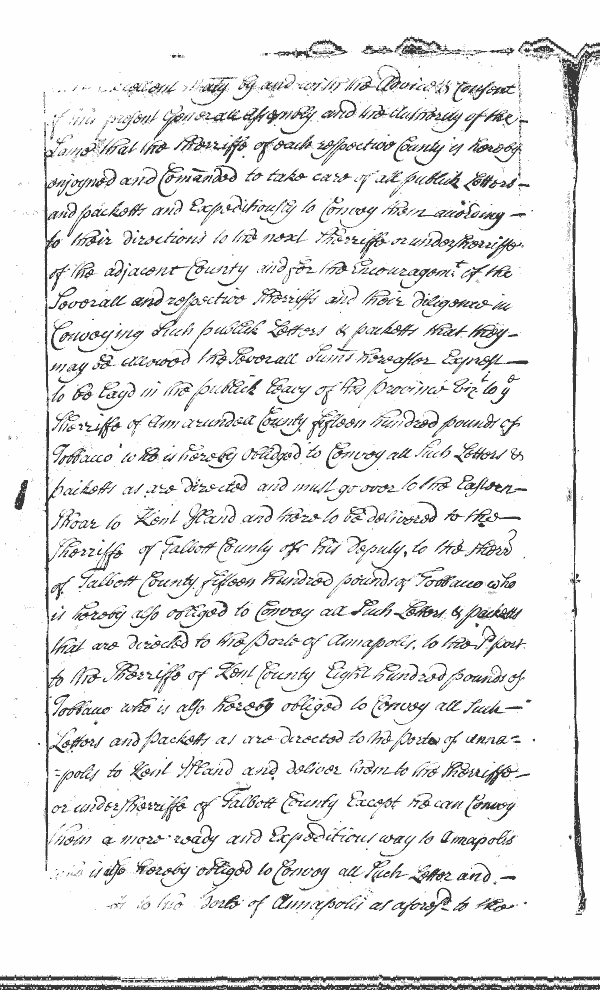 Excellent Maty by and with the Advice & Consent
of this present Generall Assembly and the Authority of the
Same That the Sherriffe of each respective County is hereby
enjoyned and Comanded to take care of all publick Letters
and packetts and Expeditiously to Convey them according
to their directions to the next Sherriffe or undersherriffe
of the adjacent County and for the Encouragemt of the
Severall and respective Sherriffs and their diligence in
Conveying Such publick Letters & packetts that they
may be allowed the Severall Sums hereafter Exprest
to be layd in the publick leavy of this Province Vizt to ye
Sherriffe of Annarundea County fifteen hundred pounds of
Tobbacco who is hereby obliged to Convey all Such Letters &
packetts as are directed and must go over to the Eastern
Shoar to Kent Island and there to be delivered to the
Sherriffe of Talbott County or his Deputy, to the Sherr
of Talbott County fifteen hundred pounds of Tobbacco who
is hereby also obliged to Convey all Such Letters & packetts
that are directed to the Porte of Annapolis, to the Sd port
to the Sherriffe of Kent County Eight hundred pounds of
Tobbaco who is also hereby obliged to Convey all Such
Letters and packetts as are directed to the porte of Anna=
=polis to Kent Island and deliver them to the Sherriffe
or undersherriffe of Talbott County Except he can Convey
them a more ready and Expeditious way to Annapolis
who is also hereby obliged to Convey all Such Letter and
to the Porte of Annapolis as aforesd to the